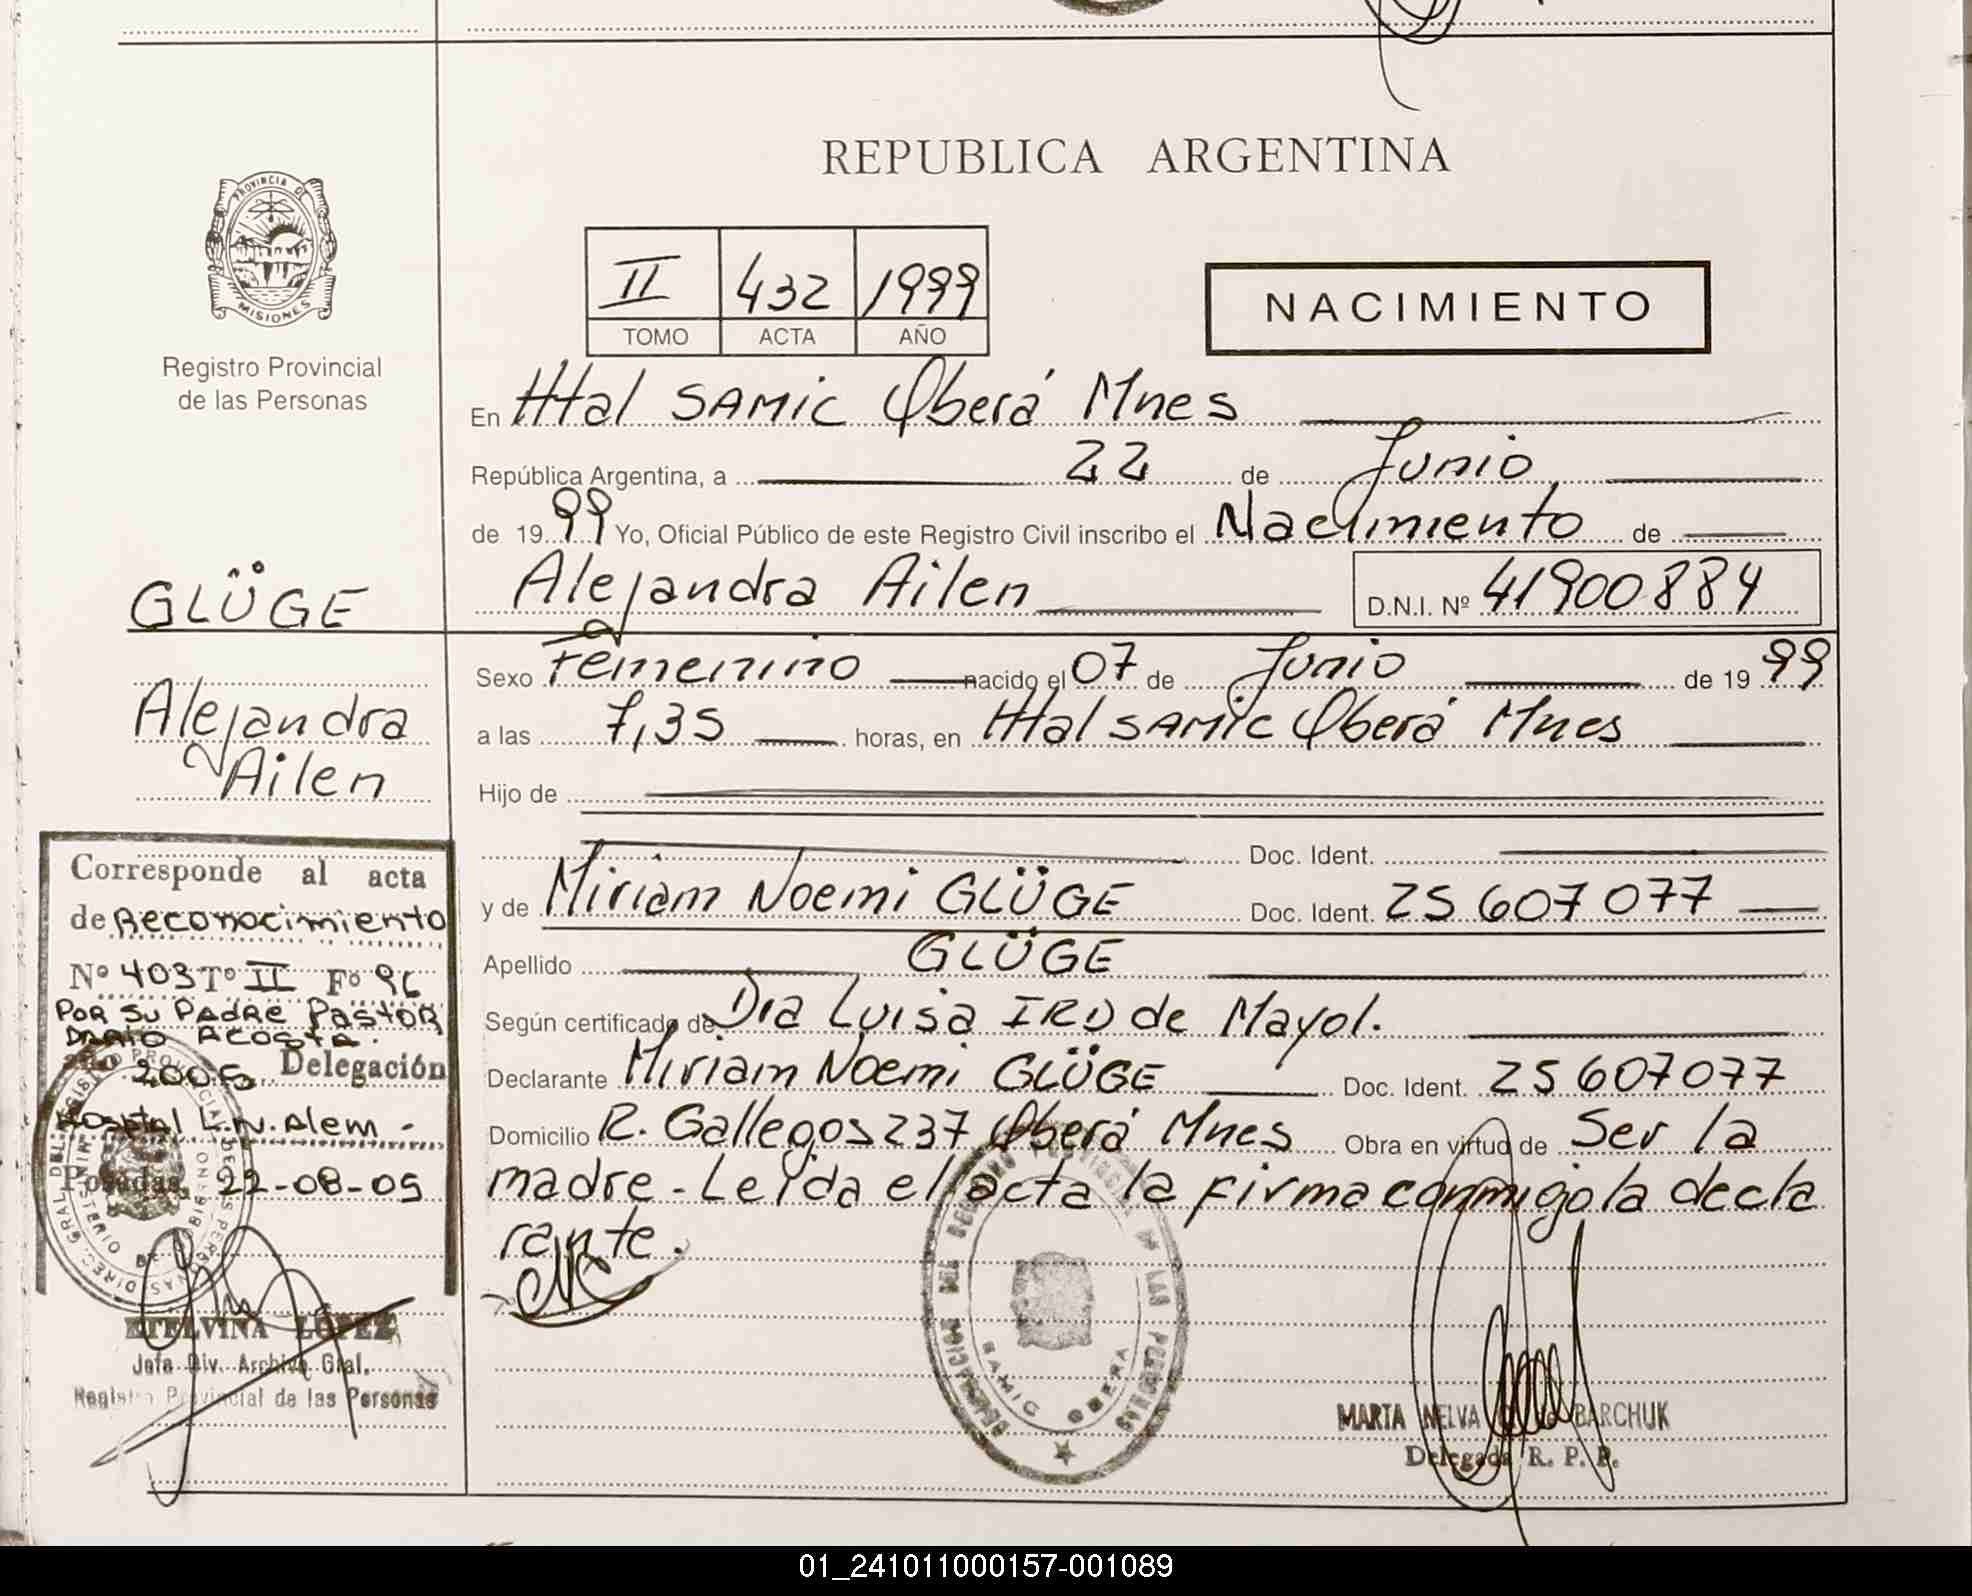 REPUBLICA ARGENTINA
PROVINCIA DE
MISIONES
Registro Provincial
de las Personas
II 432 1999
TOMO ACTA AÑO
NACIMIENTO
En Htal SAMIC Oberá Mnes
República Argentina, a 22 de Junio
de 1999 Yo, Oficial Público de este Registro Civil inscribo el Nacimiento de
Alejandra Ailen D.N.I. Nº 41900884
Sexo Femenino nacido el 07 de Junio de 1999
a las 7,35 horas, en Htal SAMIC Oberá Mnes
Hijo de
Doc. Ident.
y de Miriam Noemi GLÜGE Doc. Ident. 25 607 077
Apellido GLÜGE
Según certificado de Dra Luisa de Mayol.
Declarante Miriam Noemi GLÜGE Doc. Ident. 25 607077
Domicilio R. Gallegos 237 Oberá Mnes Obra en virtud de Ser la
madre - Leída el acta la firma conmigo la decla
rante.
SAMIC OBERA
MARTA NELVA BARCHUK
Delegada R. P. P.
GLÜGE
Alejandra
Ailen
Corresponde al acta
de Reconocimiento
Nº 403 Tº II Fº 96
POR SU PADRE PASTOR
DARIO ACOSTA.
año 2005 Delegación
Hospital L.N. Alem -
Posadas, 22-08-05
ETELVINA LÓPEZ
Jefa Div. Archivo Gral.
Registro Provincial de las Personas
01_241011000157-001089